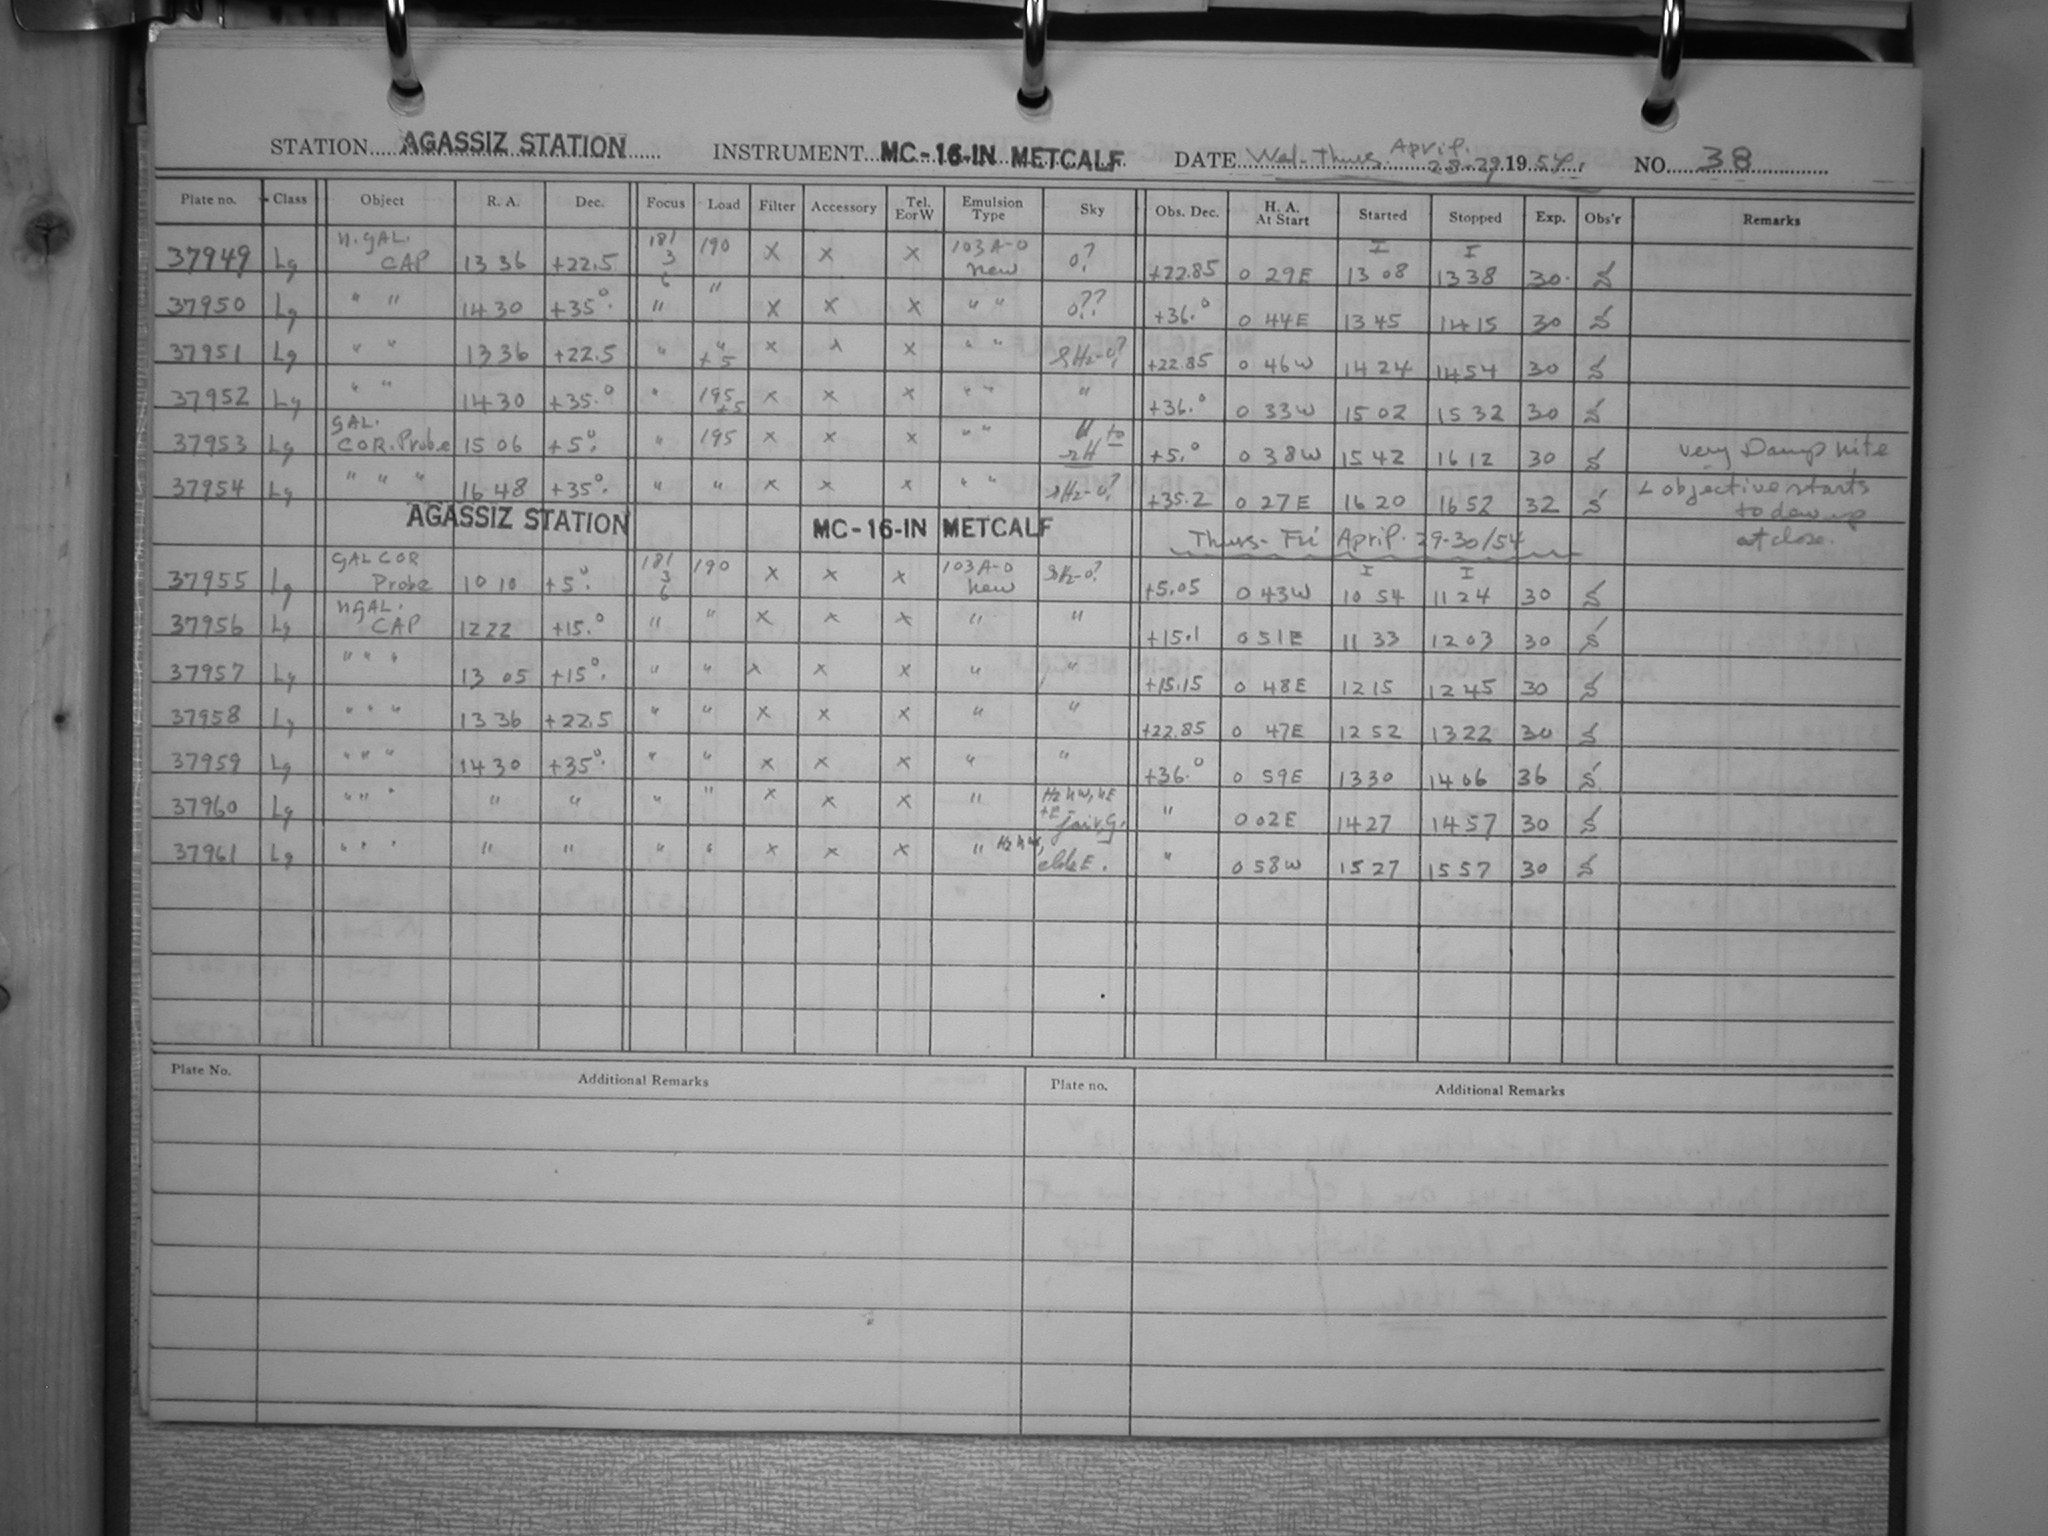 STATION AGASSIZ STATION INSTRUMENT MC-16-IN METCALF DATE Wed-Thurs April 28-29 1954. NO. 38
Plate no. Class Object R. A. Dec. Focus Load Filter Accessory Tel. E or W Emulsion Type Sky Obs. Dec. H. A. At Start Started Stopped Exp. Obs'r Remarks
37949 Lg N. GAL. CAP 13 36 +22.5 181 3 6 190 X X X 103A-O new 0? +22.85 0 29E I 13 08 I 13 38 30.
37950 Lg " " 14 30 +35°. " " X X X " " 0?? +36.° 0 44E 13 45 14 15 30
37951 Lg " " 13 36 +22.5 " " +5 X X X " " SHz-0? +22.85 0 46W 14 24 14 54 30
37952 Lg " " 14 30 +35.° " 195 +5 X X X " " " +36.° 0 33W 15 02 15 32 30
37953 Lg GAL. COR. Probe 15 06 +5.° " 195 X X X " " to +5.° 0 38W 15 42 16 12 30 very Damp nite
37954 Lg " " " 16 48 +35°. " " X X X " " SHz-0? +35.2 0 27E 16 20 16 52 32 objective starts to dew up at close.
AGASSIZ STATION MC-16-IN METCALF Thurs-Fri April. 29-30/54
37955 Lg GAL COR Probe 10 10 +5°. 181 3 6 190 X X X 103A-O new SHz-0? +5.05 0 43W I 10 54 I 11 24 30
37956 Lg N GAL. CAP 12 22 +15.° " " X X X " " +15.1 0 51E 11 33 12 03 30
37957 Lg " " " 13 05 +15°. " " X X X " " +15.15 0 48E 12 15 12 45 30
37958 Lg " " " 13 36 +22.5 " " X X X " " +22.85 0 47E 12 52 13 22 30
37959 Lg " " " 14 30 +35°. " " X X X " " +36.° 0 59E 13 30 14 06 36
37960 Lg " " " " " " " X X X " Hz NW, NE +E " 0 02E 14 27 14 57 30
37961 Lg " " " " " " " X X X " Hz NW, E. " 0 58W 15 27 15 57 30
Plate No. Additional Remarks Plate no. Additional Remarks